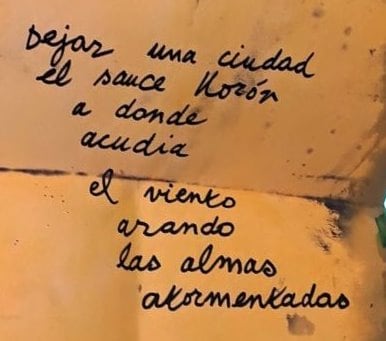 Dejar una ciudad
el sauce llorón
a donde
acudia
el viento
arando
las almas
atormentadas